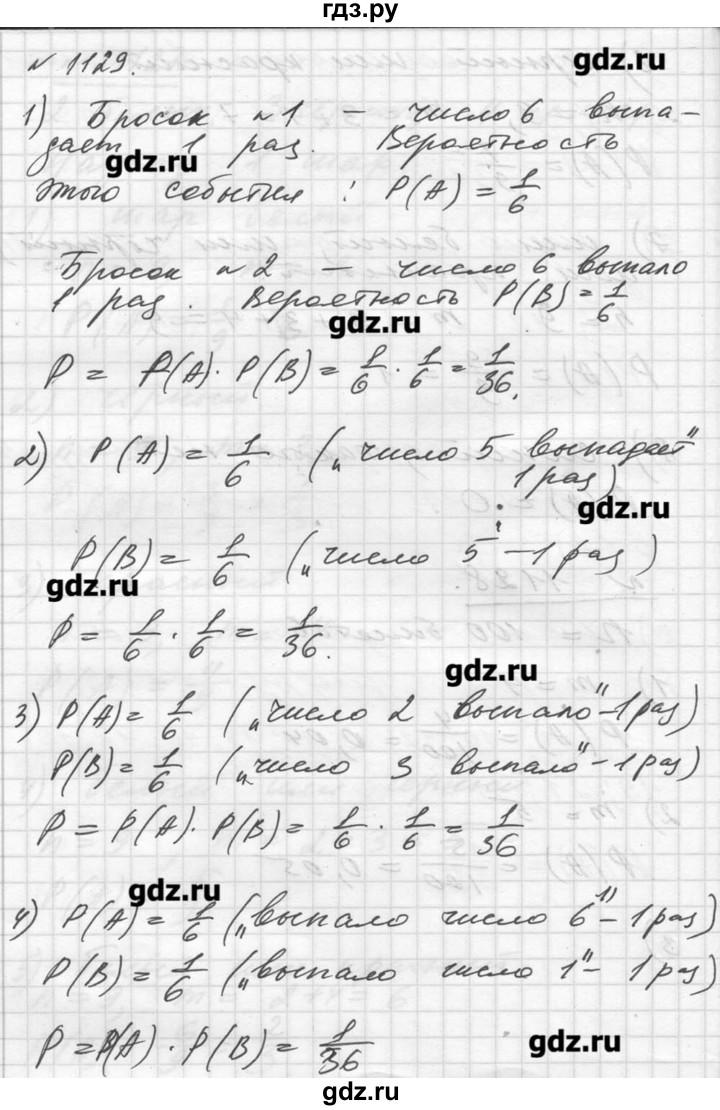 гдз.ру
№ 1129.
gdz.ru
1) Бросок №1 – число 6 выпа-
дает 1 раз. Вероятность
gdz.ru
этого события : P(A) = 1/6
Бросок №2 – число 6 выпало
1 раз. Вероятность P(B) = 1/6
gdz.ru
P = P(A) · P(B) = 1/6 · 1/6 = 1/36.
2) P(A) = 1/6 („число 5 выпадает"
1 раз)
gdz.ru
P(B) = 1/6 („число 5" – 1 раз)
gdz.ru
P = 1/6 · 1/6 = 1/36.
gdz.ru
3) P(A) = 1/6 („число 2 выпало" – 1 раз)
P(B) = 1/6 („число 3 выпало" – 1 раз)
P = P(A) · P(B) = 1/6 · 1/6 = 1/36
gdz.ru
4) P(A) = 1/6 („выпало число 6" – 1 раз)
P(B) = 1/6 („выпало число 1" – 1 раз)
P = P(A) · P(B) = 1/36
gdz.ru
gdz.ru